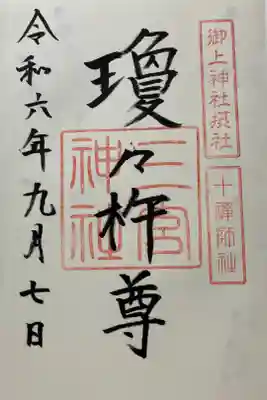 御上神社摂社
十禅師社
瓊々杵尊
三宮神社
令和六年九月七日